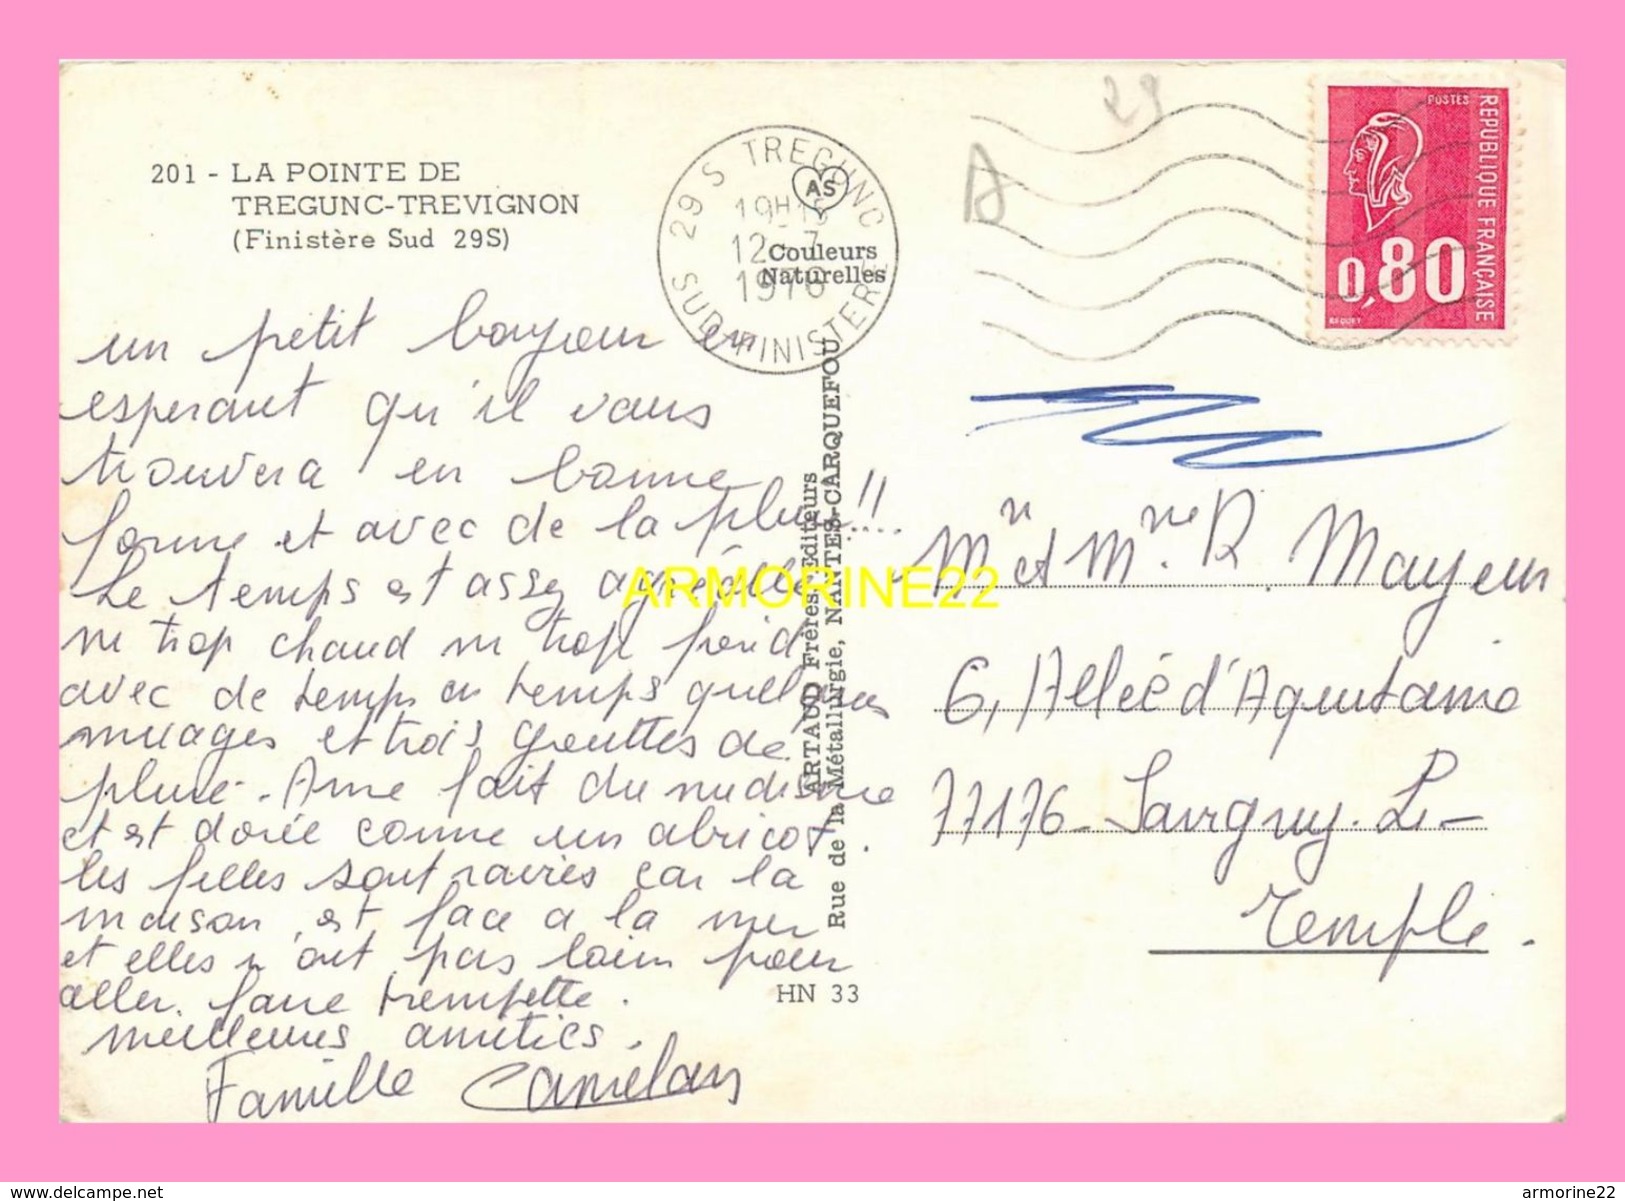 201 - LA POINTE DE
TREGUNC-TREVIGNON
(Finistère Sud 29S)
29 S TREGUNC
19H15
12 - 7
1976
SUD FINISTERE
AS
Couleurs
Naturelles
29
A
POSTES
REPUBLIQUE FRANÇAISE
0,80
BEQUET
un petit bonjour en
esperant qu'il vous
trouvera en bonne
forme et avec de la pluie!!....
Le temps est assez agréable
ni trop chaud ni trop froid
avec de temps en temps quelques
nuages et trois gouttes de
pluie. Anne fait du nudisme
et est dorée comme un abricot.
les filles sont ravies car la
maison est face a la mer
et elles n'ont pas loin pour
aller faire trempette.
meilleures amitiés.
Famille
ARTAUD Frères, Editeurs
Rue de la Métallurgie, NANTES-CARQUEFOU
HN 33
ARMORINE22
Mr et Mme R. Mayeur
6, Allée d'Aquitaine
77176 - Savigny. Le -
Temple.
https://www.delcampe.net
armorine22